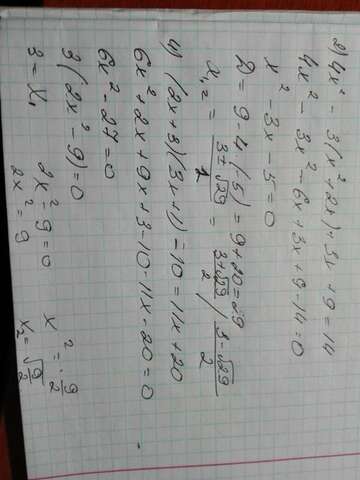 2) 4x² - 3(x² + 2x) + 3x + 9 = 14
4x² - 3x² - 6x + 3x + 9 - 14 = 0
x² - 3x - 5 = 0
D = 9 - 4·(-5) = 9 + 20 = 29
x₁,₂ = (3 ± √29)/1 = (3 + √29)/2 / (3 - √29)/2
4) (2x + 3)(3x + 1) = 10 = 11x + 20
6x² + 2x + 9x + 3 - 10 - 11x - 20 = 0
6x² - 27 = 0
3(2x² - 9) = 0
3 = x₁ 2x² - 9 = 0 x² = 9/2
2x² = 9 x₂ = √9/2